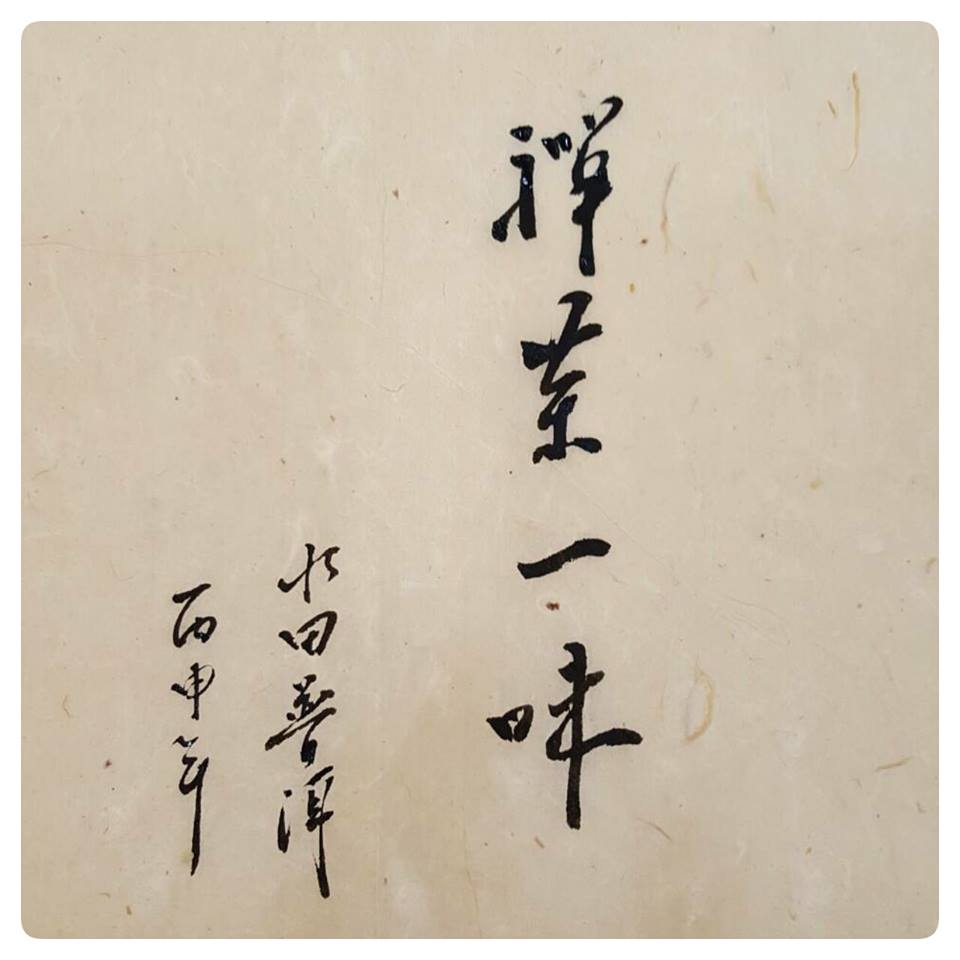 禪茶一味
田普洱
丙申年